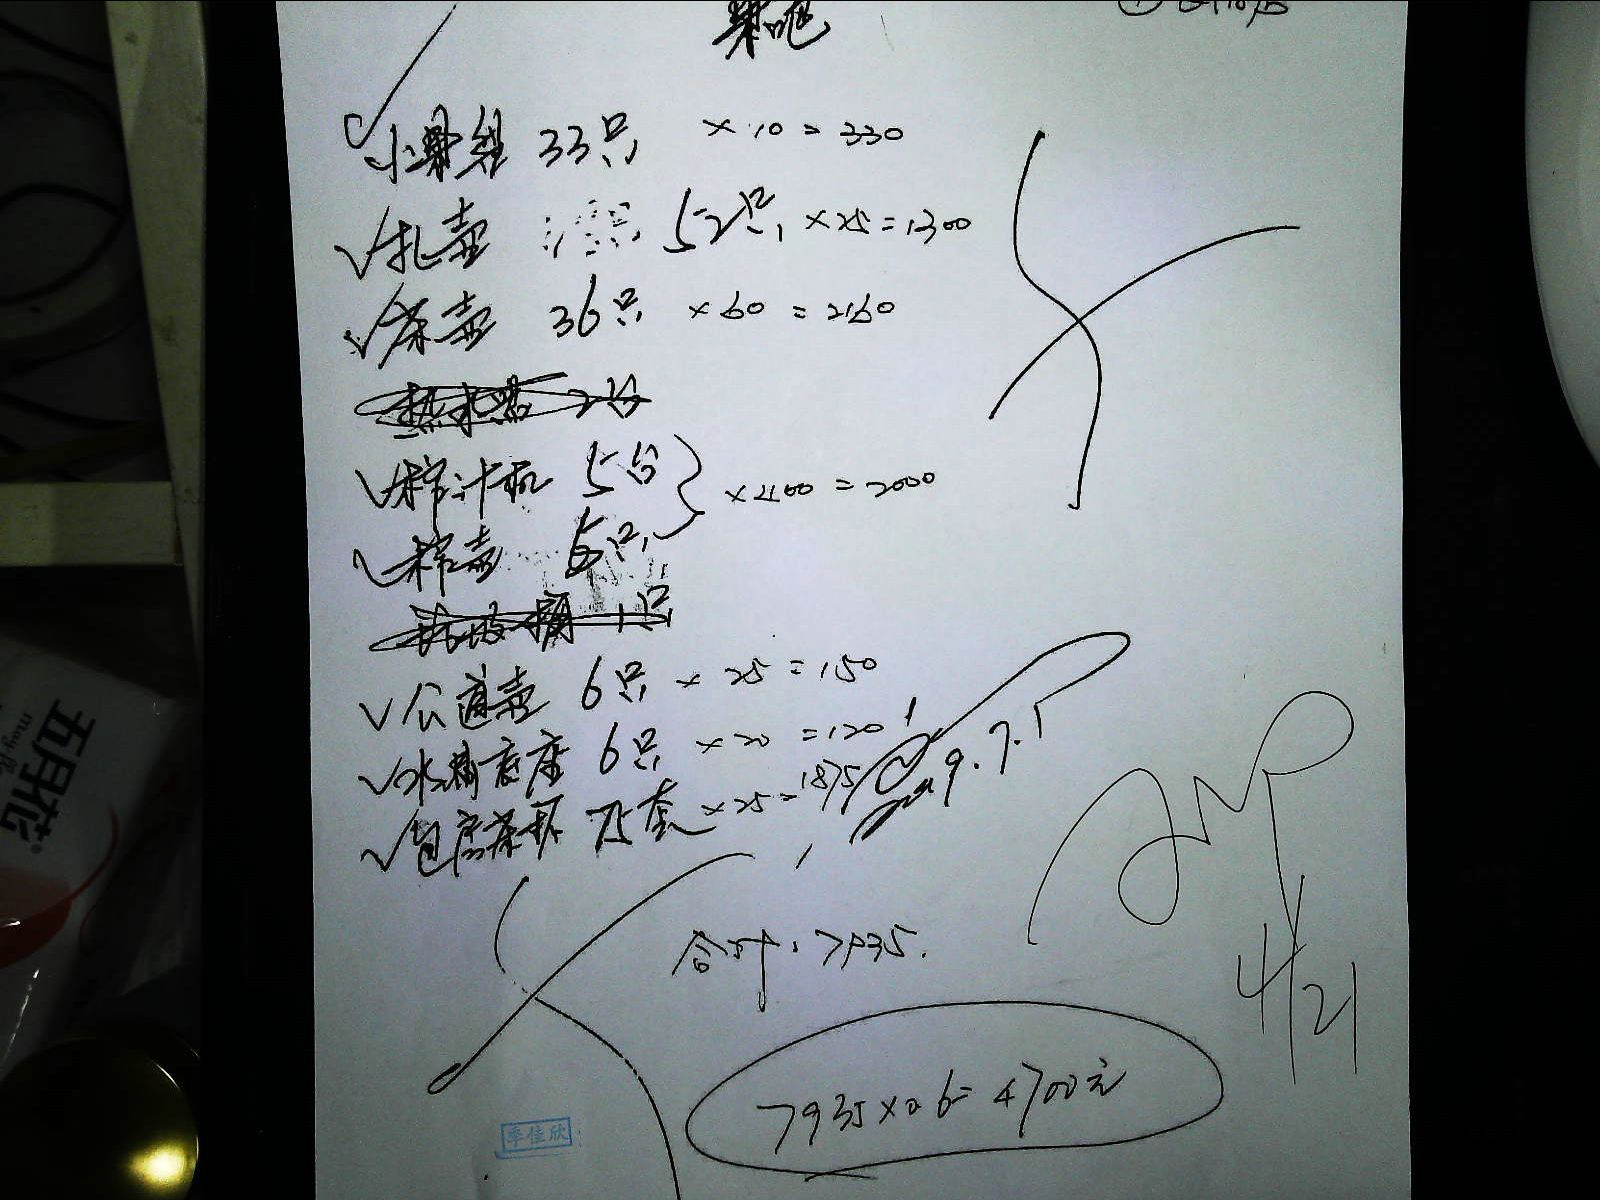 小骨组 33只 ×10=330
扎壶 52只 ×25=1300
茶壶 36只 ×60=2160
热水器 2台
榨汁机 5台
×400=2000
榨壶 5只
1只
公道壶 6只 ×25=150
水精底座 6只 ×20=120
包房茶杯 75套 ×25=1875
9.7.5
合计:7935.
4/21
7935×0.6=4700元
李佳欣
五月花
may flo